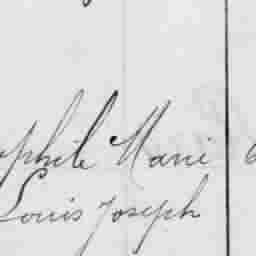 ophile Marie
Louis Joseph